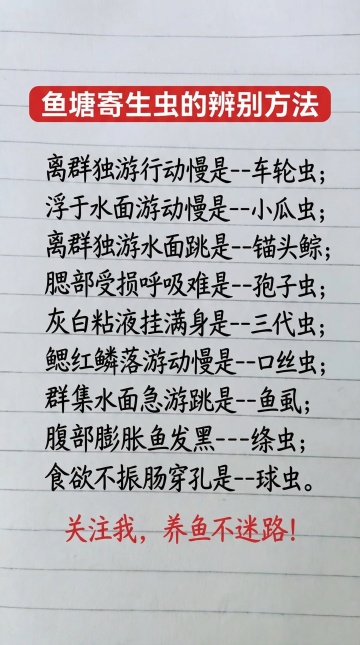 鱼塘寄生虫的辨别方法
离群独游行动慢是--车轮虫；
浮于水面游动慢是--小瓜虫；
离群独游水面跳是--锚头鯮；
腮部受损呼吸难是--孢子虫；
灰白粘液挂满身是--三代虫；
鳃红鳞落游动慢是--口丝虫；
群集水面急游跳是--鱼虱；
腹部膨胀鱼发黑---绦虫；
食欲不振肠穿孔是--球虫。
关注我，养鱼不迷路！